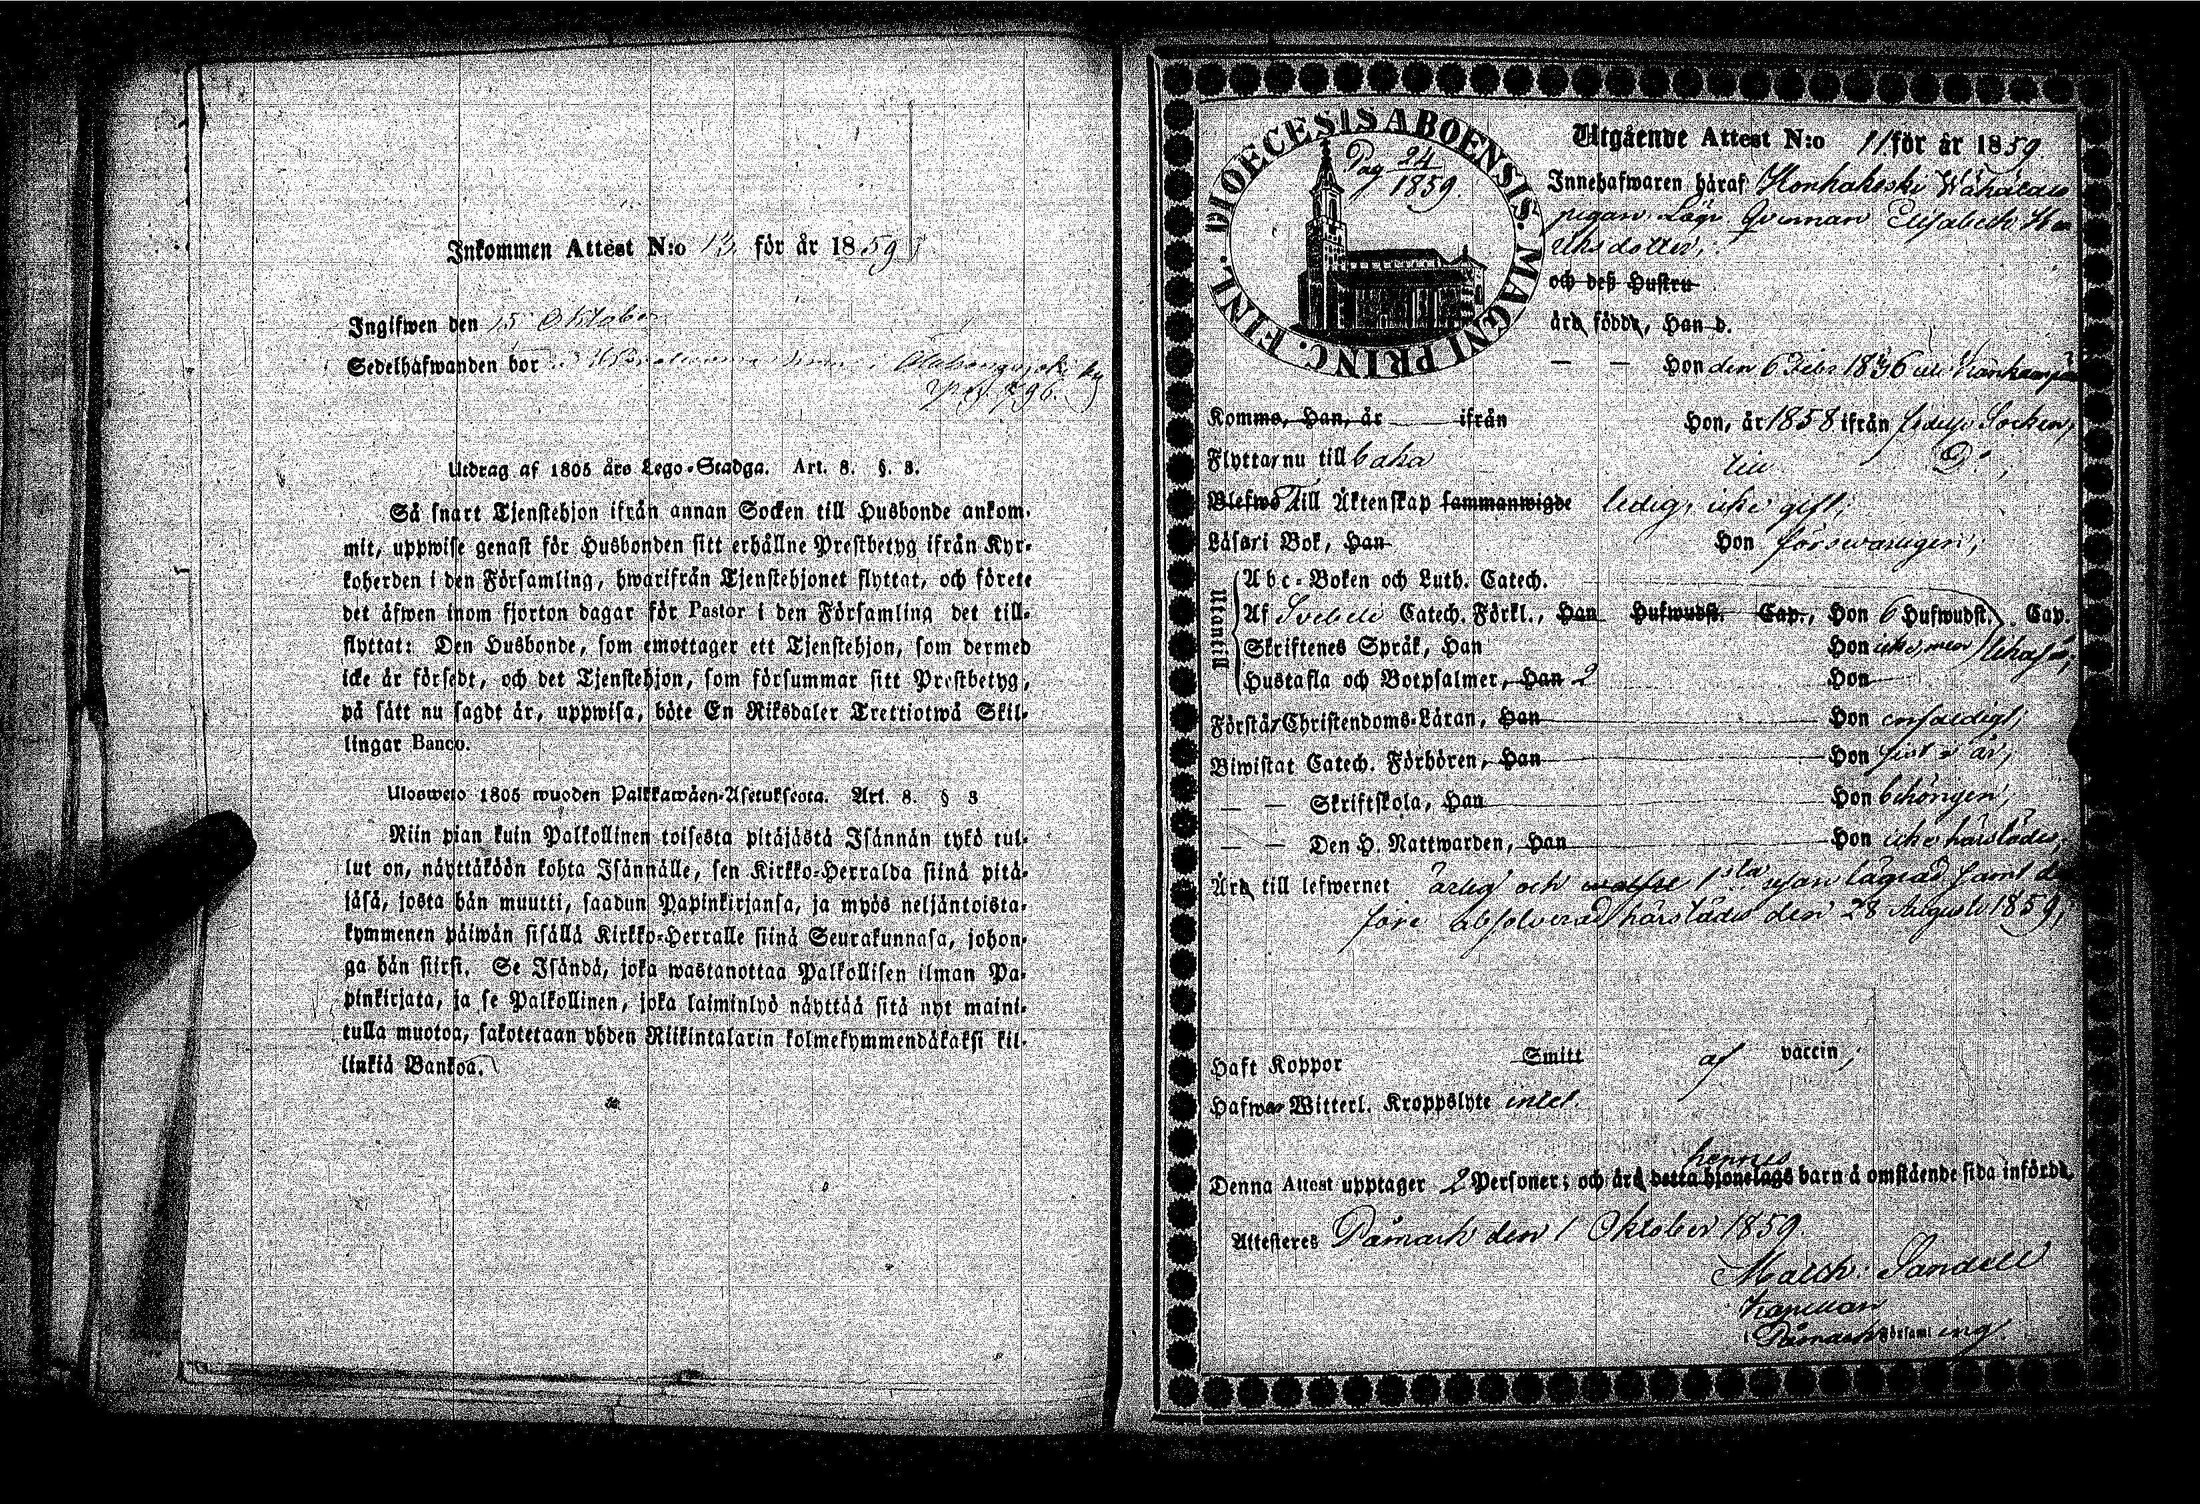 Inkommen Attest N:o 13 för år 1859
Ingifwen den 15 Oktober
Sedelhafwanden bor
Utdrag af 1805 års Lego-Stadga. Art. 8. §. 3.
Så snart Tjenstehjon ifrån annan Socken till Husbonde ankom-
mit, uppwise genast för Husbonden sitt erhållne Prestbetyg ifrån Kyr-
koherden i den Församling, hwarifrån Tjenstehjonet flyttat, och förete
det äfwen inom fjorton dagar för Pastor i den Församling det till-
flyttat: Den Husbonde, som emottager ett Tjenstehjon, som dermed
icke är försedt, och det Tjenstehjon, som försummar sitt Prestbetyg,
på sätt nu sagdt är, uppwisa, böte En Riksdaler Trettiotwå Skil-
lingar Banco.
Ulosweto 1805 wuoden Palkkawäen-Asetuksesta. Art. 8. § 3
Niin pian kuin Palkollinen toisesta pitäjästä Isännän tykö tul-
lut on, näyttäköön kohta Isännälle, sen Kirkko-Herralda siinä pitä-
jäsä, josta hän muutti, saadun Papinkirjansa, ja myös neljäntoista-
kymmenen päiwän sisällä Kirkko-Herralle siinä Seurakunnasa, johon-
ga hän siirsi. Se Isändä, joka wastanottaa Palkollisen ilman Pa-
pinkirjata, ja se Palkollinen, joka laiminlyö näyttää sitä nyt maini-
tulla muotoa, sakotetaan yhden Riikintalarin kolmekymmendäkaksi kil-
linkiä Bankoa.
DIOECESIS ABOENSIS. MAGNI PRINC. FINL.
Pag 24
1859.
Utgående Attest N:o 11 för år 1859.
Innehafwaren häraf Honkakoski
pigan Läg. Qvinnan Elisabeth
och deß Hustru
äro födde, Han d.
— — Hon den 6 Febr 1836
Komme, Han, år ifrån Hon, år 1858 ifrån Socken,
Flytta nu tillbaka till D:o;
Blefwo Till Äktenskap sammanwigde ledig, icke gift;
Läser i Bok, Han Hon försvarligen;
Utantill
Abc-Boken och Luth. Catech.
Af Svebelii Catech. Förkl., Han Hufwudst. Cap., Hon 6 Hufwudst. Cap.
Skriftenes Språk, Han Hon icke, men
Hustafla och Botpsalmer, Han 2 Hon
Förstår Christendoms-Läran, Han Hon enfaldigt;
Biwistat Catech. Förhören, Han Hon sist i år;
— — Skriftskola, Han Hon behörigen;
— — Den H. Nattwarden, Han Hon icke härstädes;
Är till lefwernet ärlig och 1sta resan lägrad samt der
före absolverad härstädes den 28 Augusti 1859;
Haft Koppor Smitt af vaccin;
Hafwa Witterl. Kroppslyte intet.
hennes
Denna Attest upptager 2 Personer; och äro detta hjonelags barn å omstående sida införde.
Attesteras Påmark den 1 Oktober 1859.
Malch: Sandell
Kapellan
i Påmark Församling.